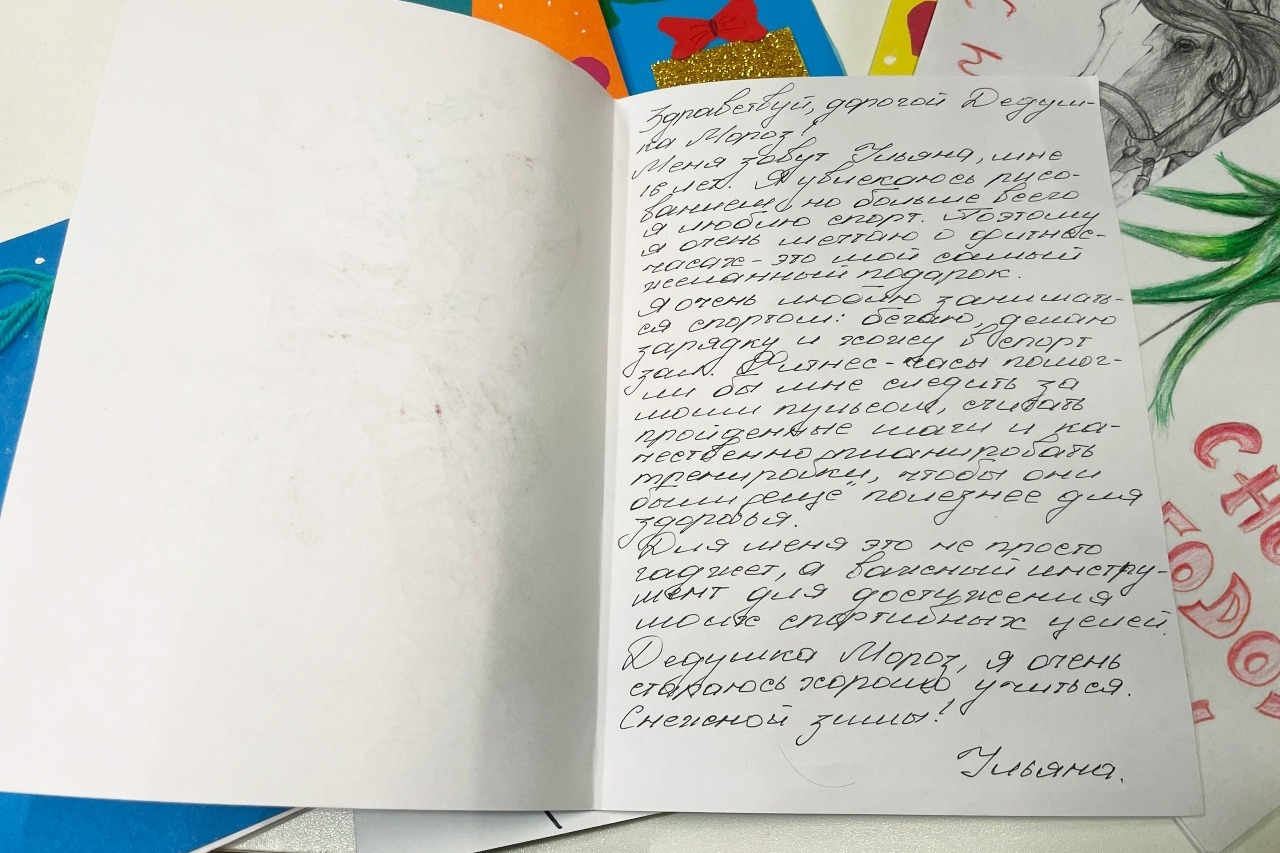 Здравствуй, дорогой Дедуш-
ка Мороз!
Меня зовут Ульяна, мне
16 лет. Я увлекаюсь рисо-
ванием, но больше всего
я люблю спорт. Поэтому
я очень мечтаю о фитнес-
часах - это мой самый
желанный подарок.
Я очень люблю занимать-
ся спортом: бегаю, делаю
зарядку и хожу в спорт
зал. Фитнес-часы помог-
ли бы мне следить за
моим пульсом, считать
пройденные шаги и ка-
чественно планировать
тренировки, чтобы они
были еще полезнее для
здоровья.
Для меня это не просто
гаджет, а важный инстру-
мент для достижения
моих спортивных целей.
Дедушка Мороз, я очень
стараюсь хорошо учиться.
Снежной зимы!
Ульяна.
С Н